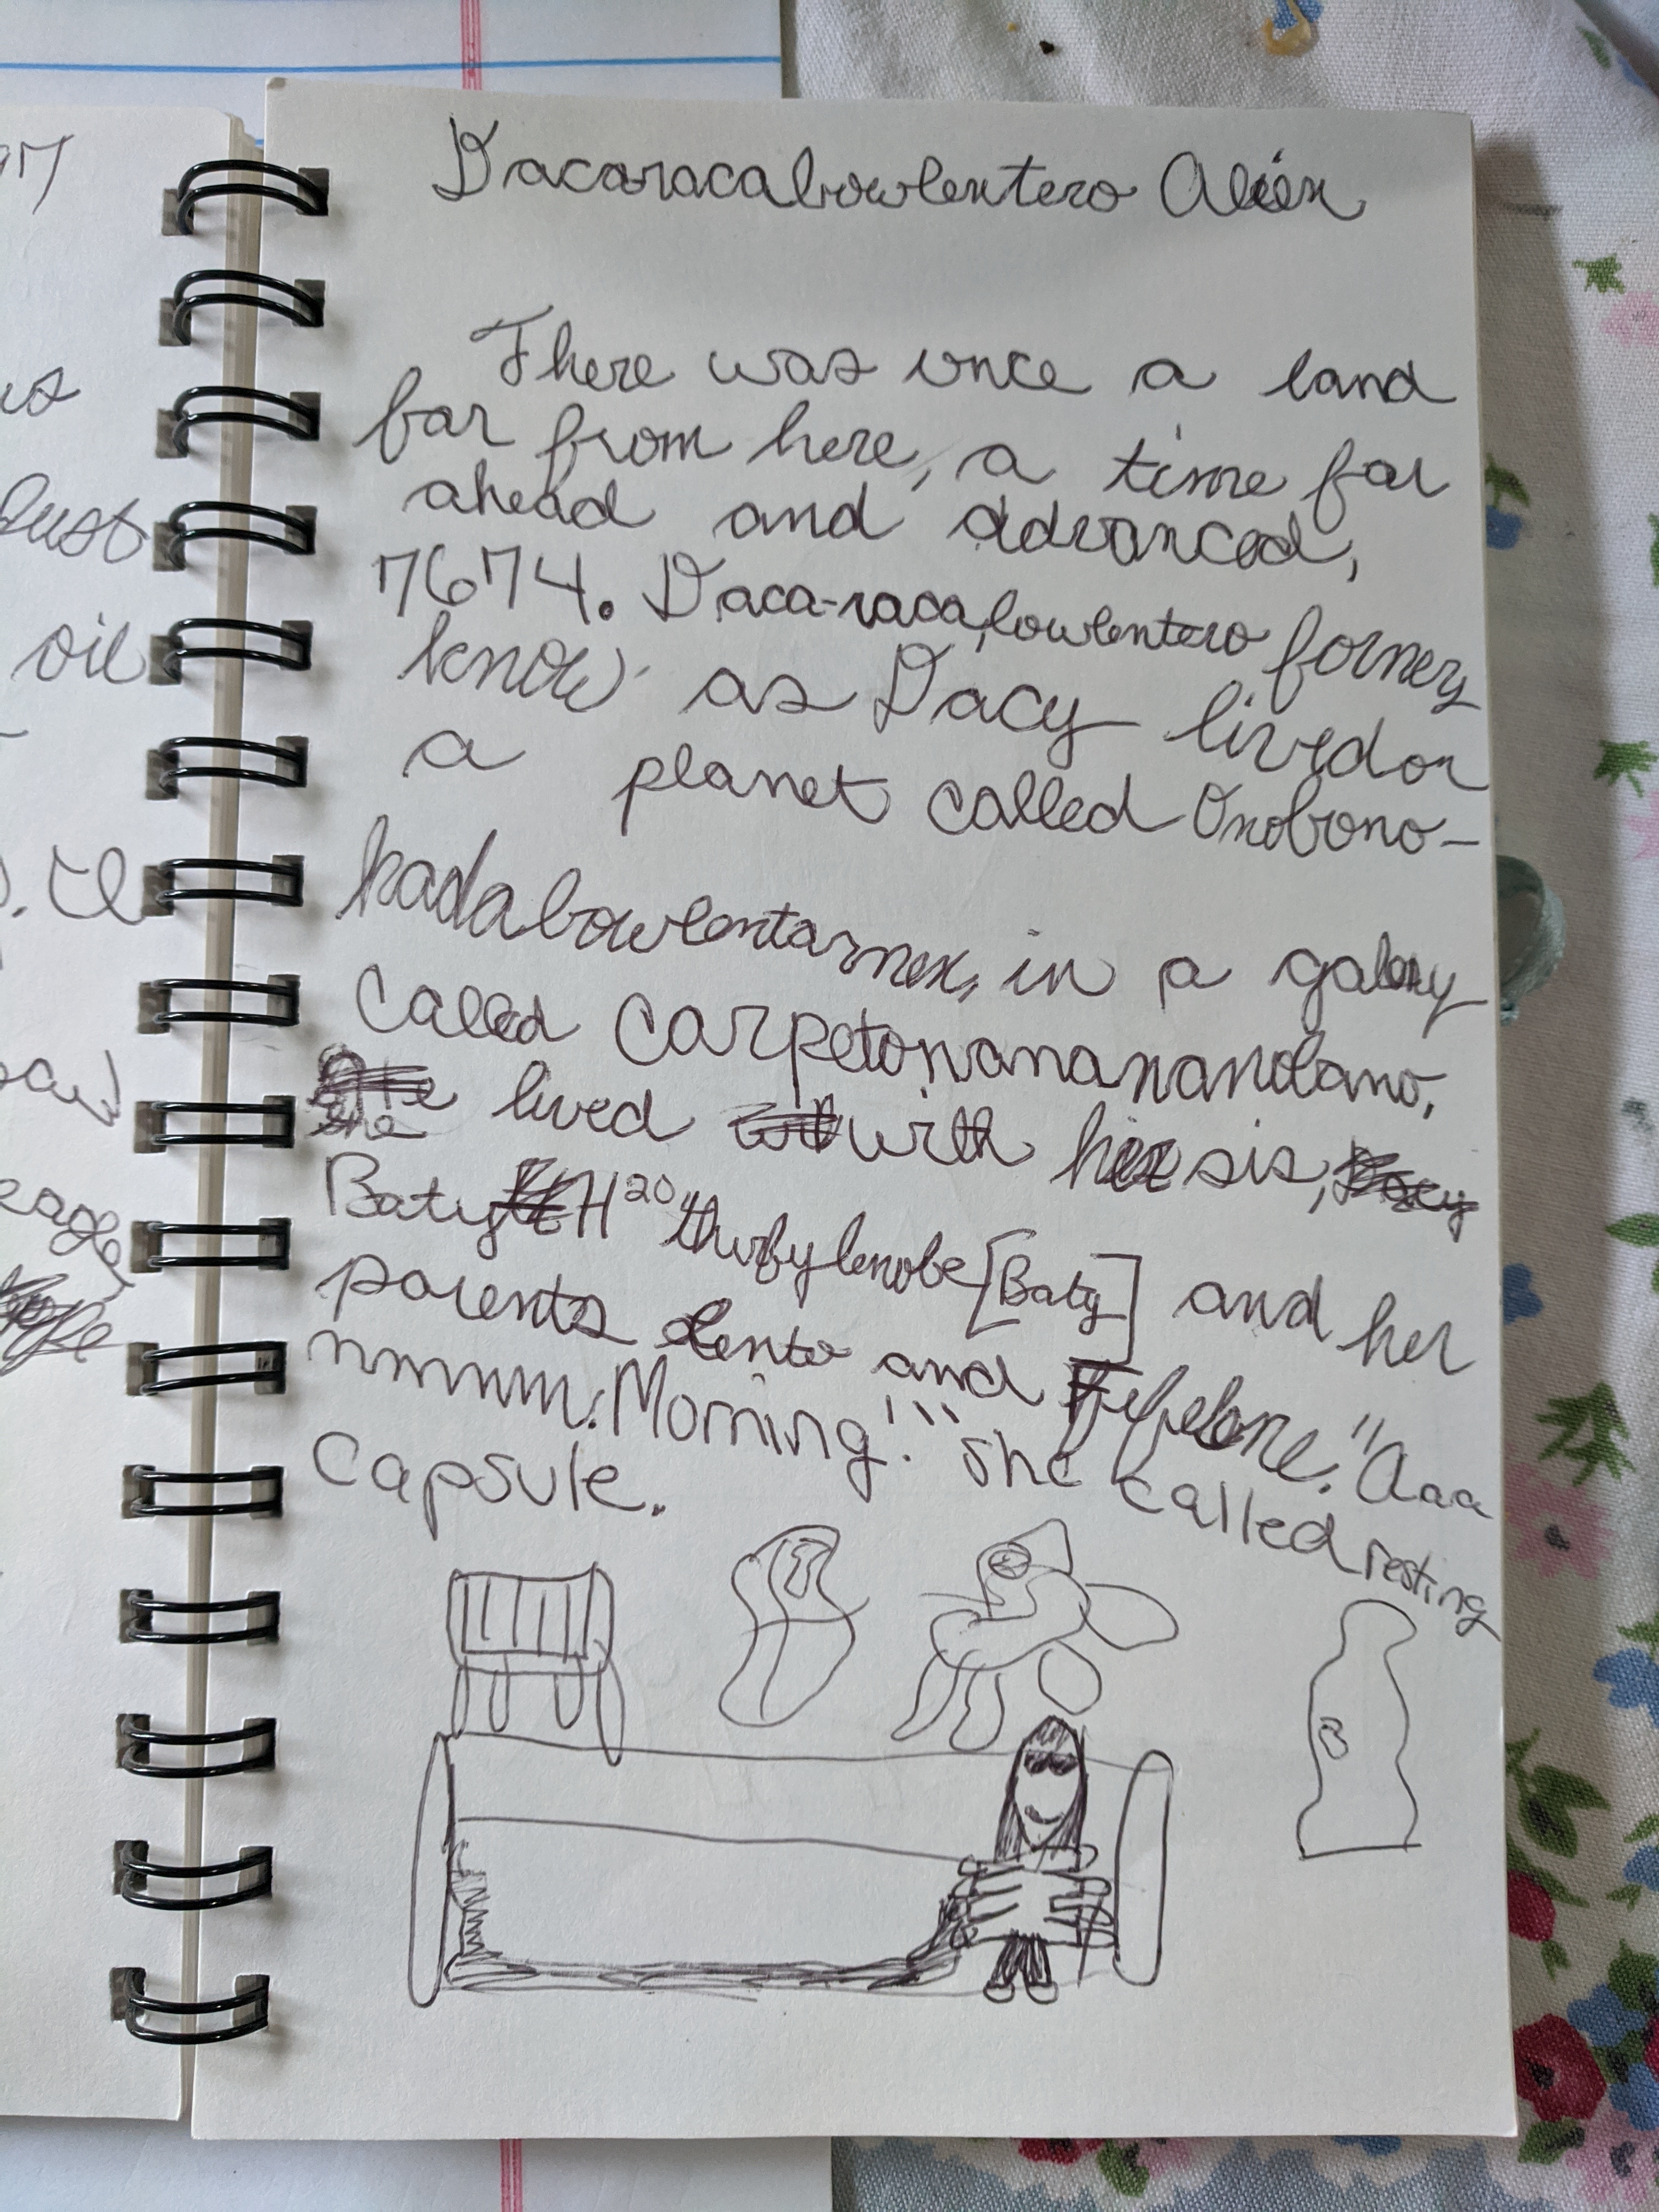 Dacaracabowlentero Alien
There was once a land
far from here, a time far
ahead and advanced,
7674. Daca-racabowlentero formery
know as Dacy lived on
a planet called Onobono-
kadabowlentarnex, in a galaxy
called carpetonanananandano,
lived with her sis,
Baty H20 thurbylenobe [Baty] and her
parents Lento and Fefelone. "Aaa
mmmm. Morning!" she called resting
capsule.
us
Dust
oil